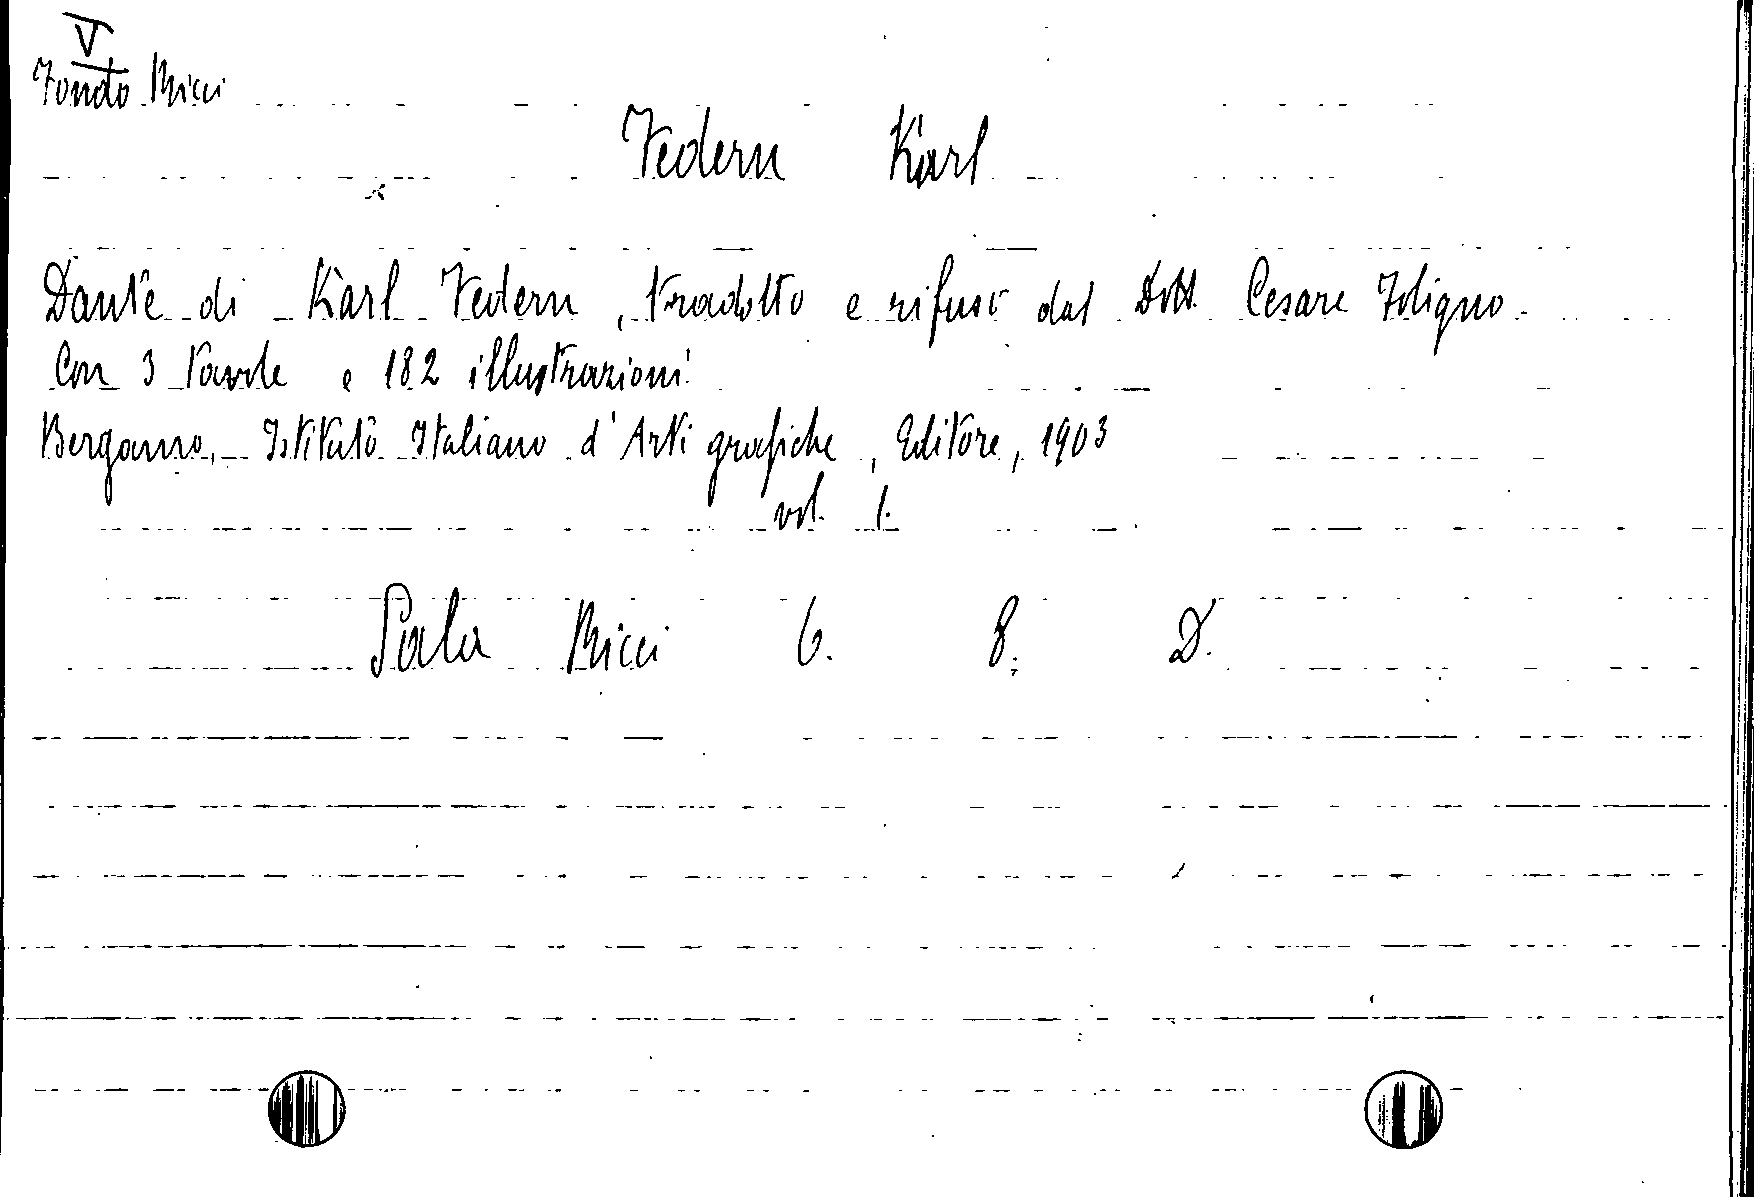 V
Fondo Ricci
Federn Karl
Dante di Karl Federn, tradotto e rifuso dal Dott. Cesare Foligno.
Con 3 tavole e 182 illustrazioni
Bergamo, Istituto Italiano d'Arti grafiche, Editore, 1903
vol. 1.
Sala Ricci 6. 8. D.